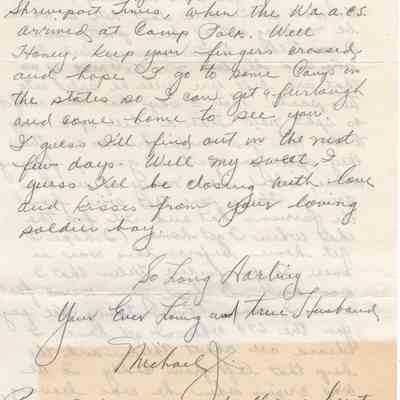 Shreveport Times, when the W.a.a.c.s.
arrived at Camp Polk. Well
Honey, keep your fingers crossed
and hope I go to some Camp in
the states so I can get a furlough
and come home to see you.
I guess I'll find out in the next
few days. Well my sweet, I
guess I'll be closing with love
and kisses from your loving
soldier boy
So Long Darling
Your Ever Loving and true Husband
Michael J.